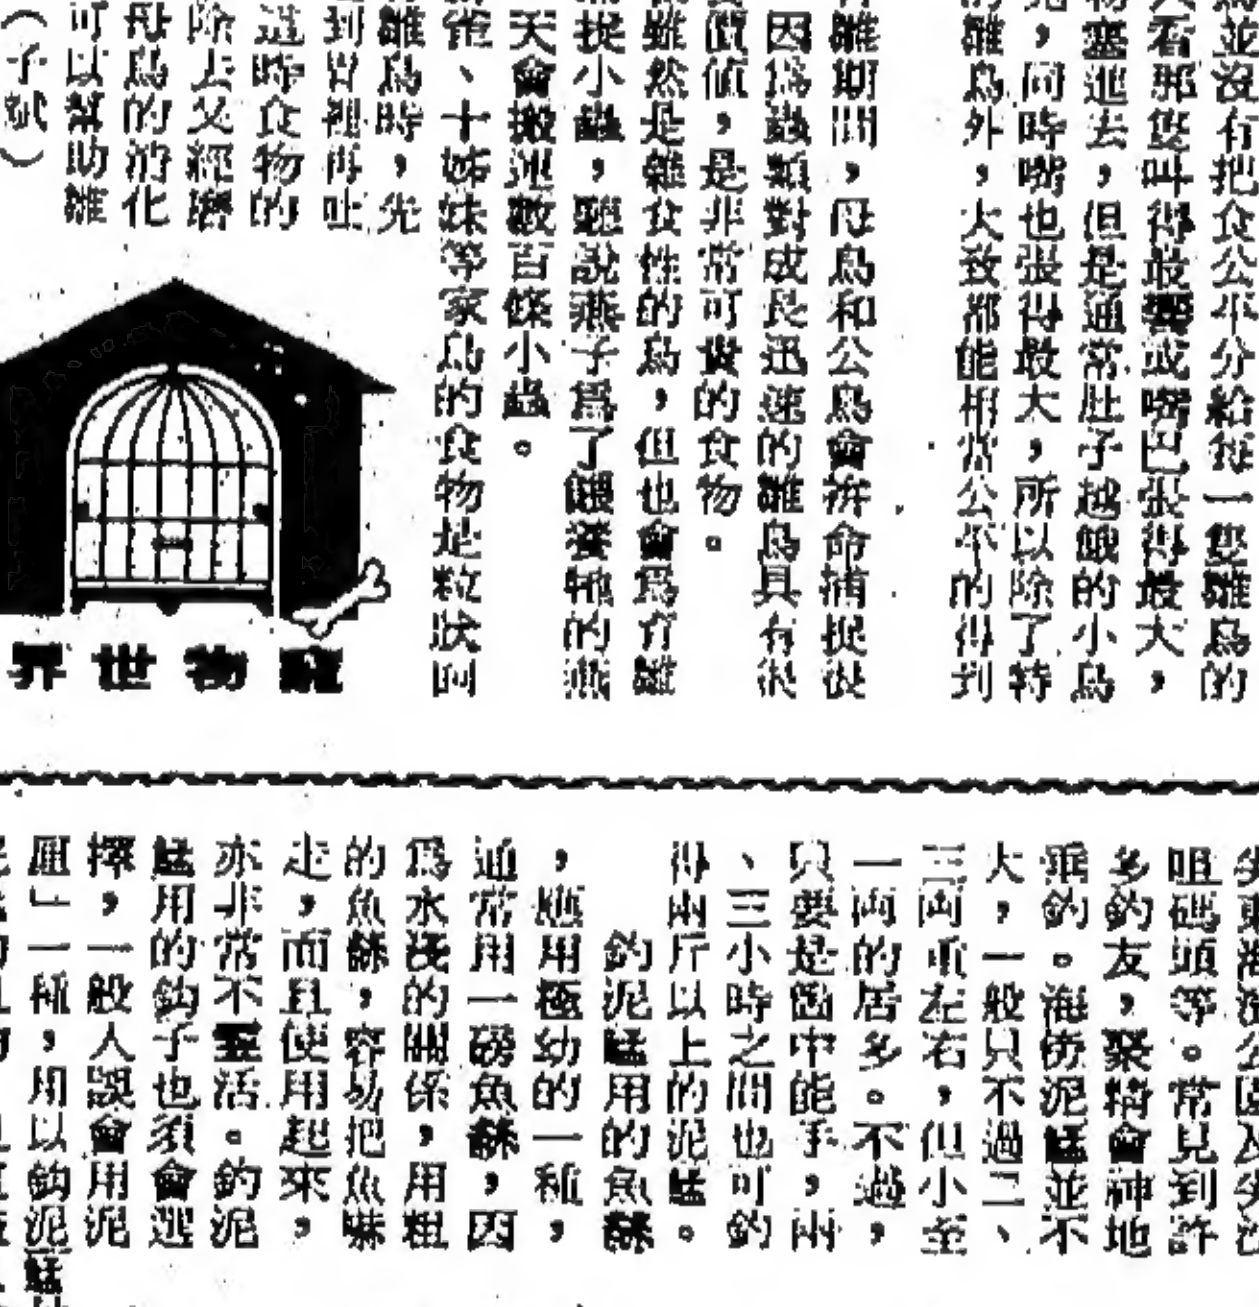 鳥並沒有把食公平分給每一隻雛鳥的
看那隻叫得最響或嘴巴張得最大，
物塞進去，但是通常肚子越餓的小鳥
，同時嘴也張得最大，所以除了特
的雛鳥外，大致都能相當公平的得到
雛期間，母鳥和公鳥會拚命捕捉很
因為蟲類對成長迅速的雛鳥具有很
價值，是非常可貴的食物。
雖然是雜食性的鳥，但也會為育雛
捕捉小蟲，聽說燕子為了餵養牠的燕
天會搬運數百條小蟲。
雀、十姊妹等家鳥的食物是粒狀的
雛鳥時，先
到胃裡再吐
這時食物的
除去又經磨
母鳥的消化
可以幫助雛
（子斌）
界世物寵
咀碼頭等。常見到許
多釣友，聚精會神地
垂釣。海傍泥鯭並不
大，一般只不過二、
三両重左右，但小至
一両的居多。不過，
只要是箇中能手，兩
、三小時之間也可釣
得兩斤以上的泥鯭。
釣泥鯭用的魚絲
，應用極幼的一種，
通常用一磅魚絲，因
為水淺的關係，用粗
的魚絲，容易把魚嚇
走，而且使用起來，
亦非常不靈活。釣泥
鯭用的鈎子也須會選
擇，一般人誤會用泥
」一種，用以鈎泥鯭